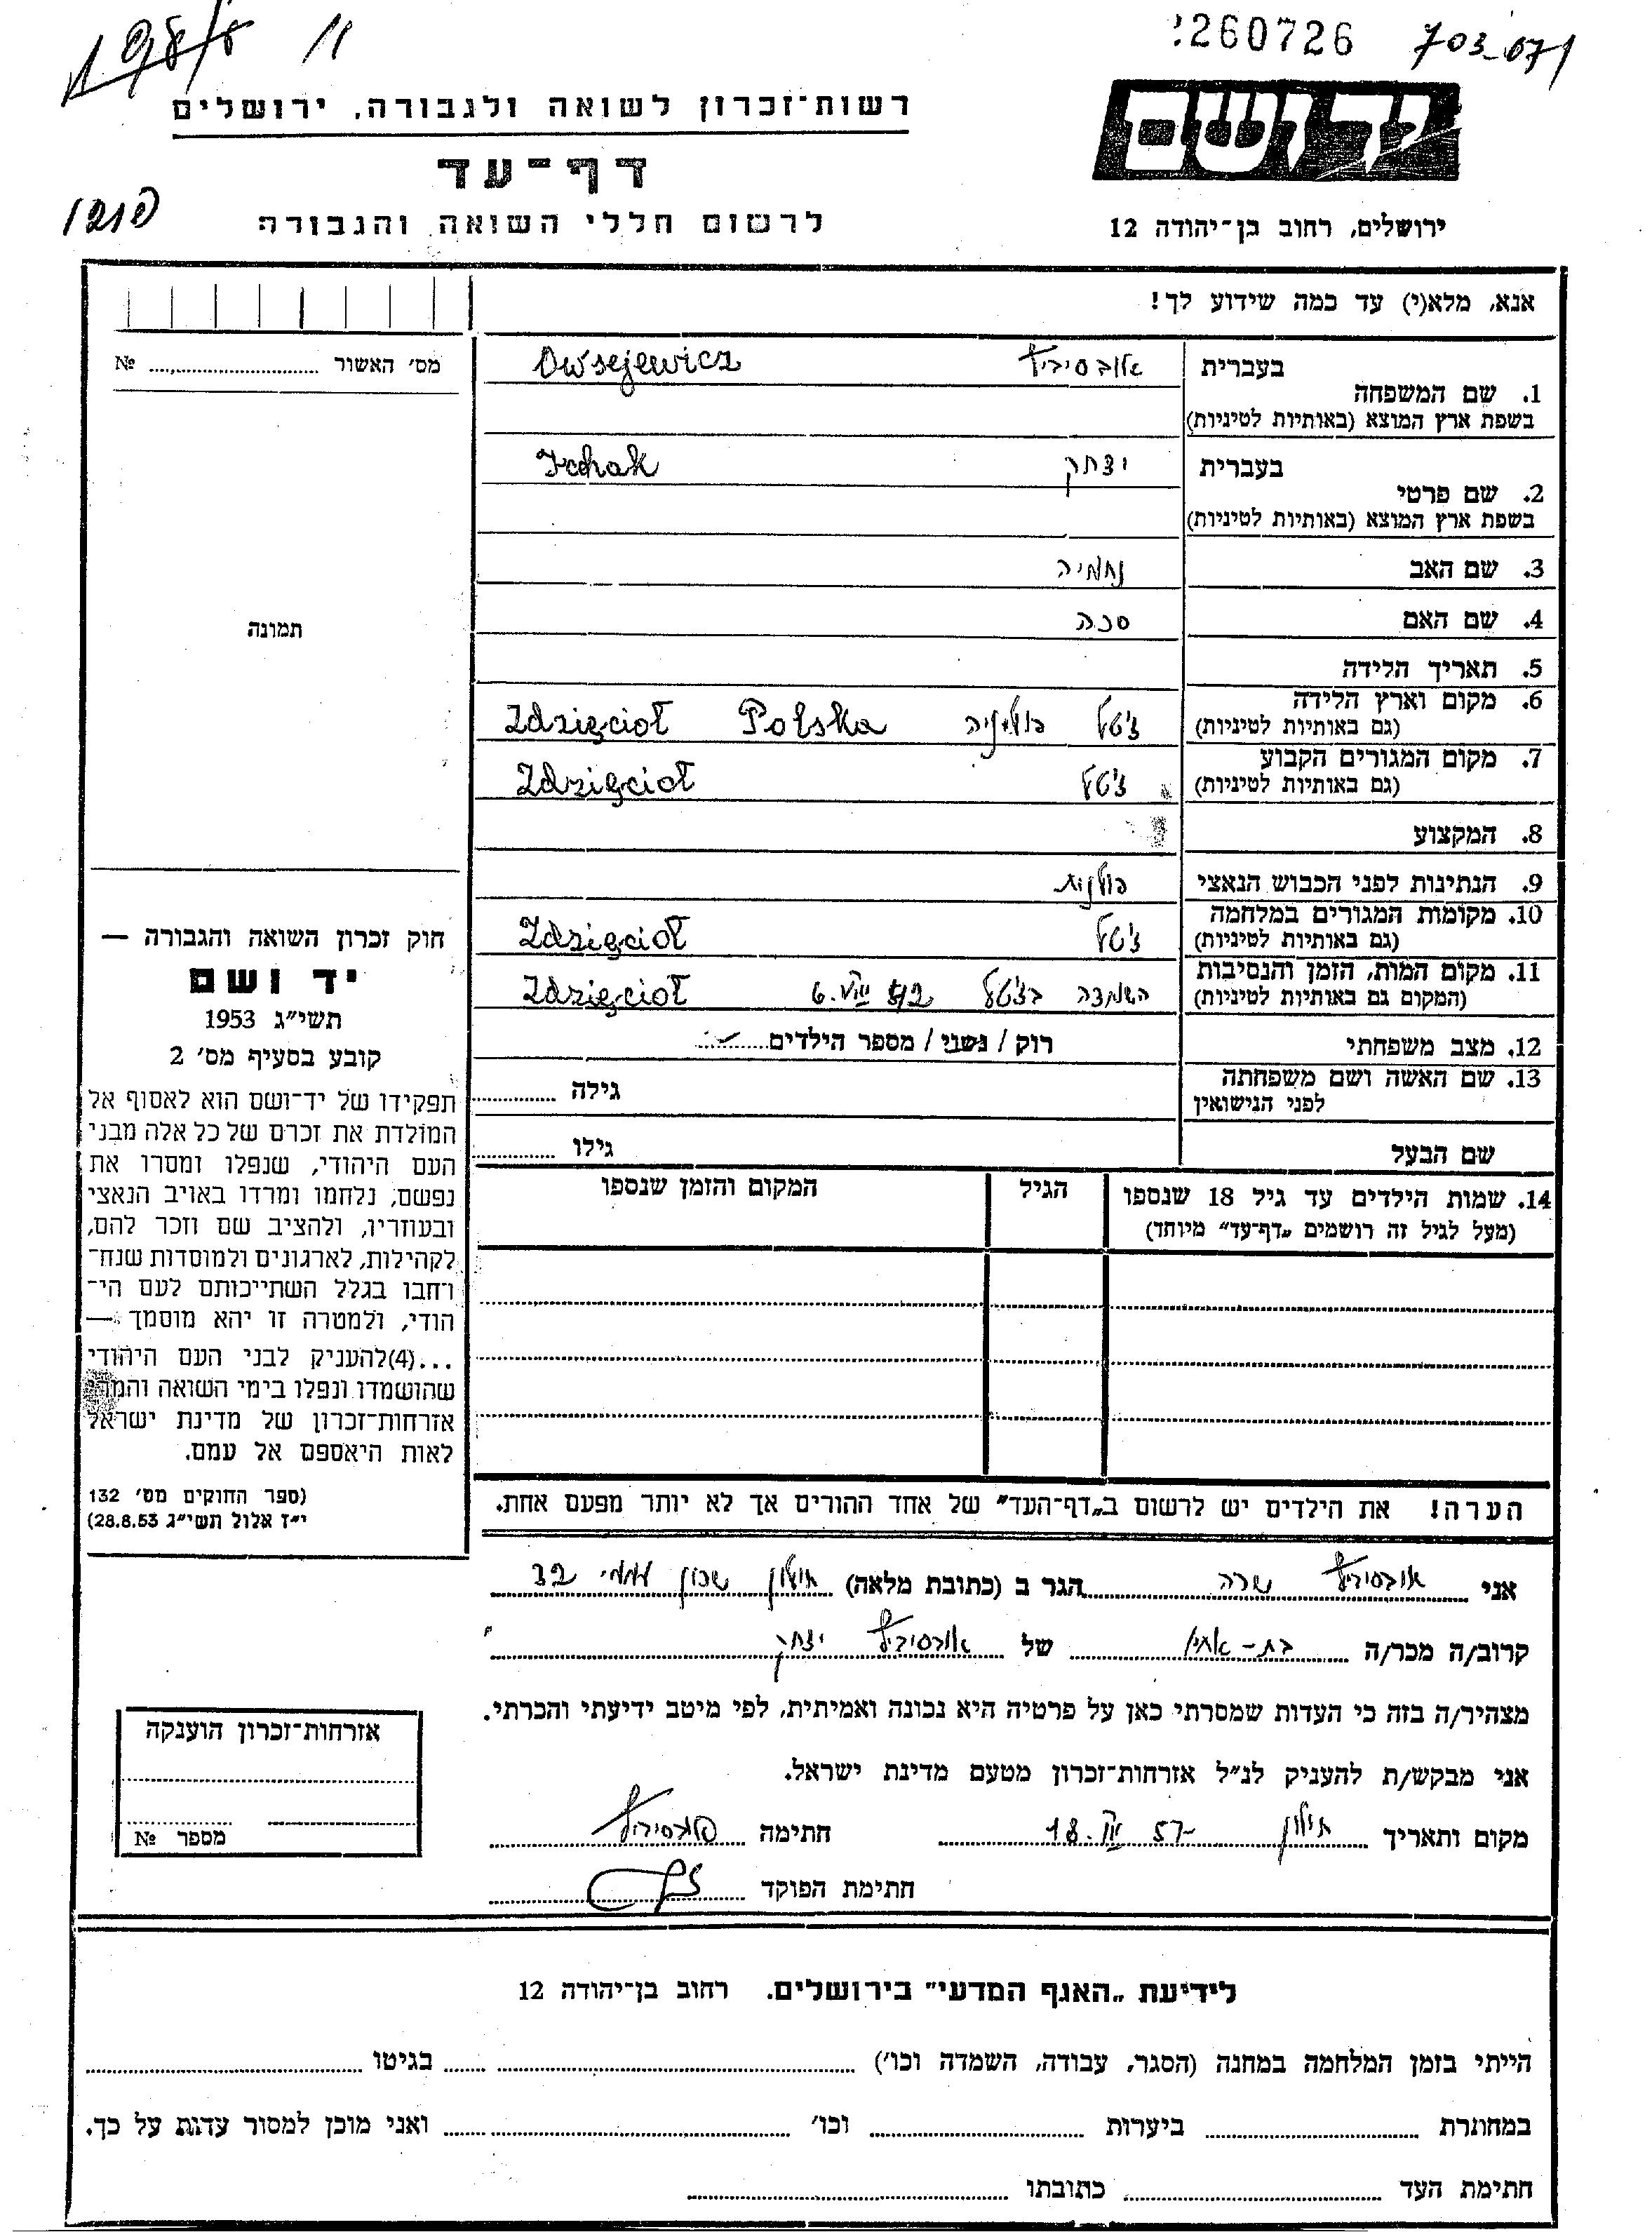 260726 703-671
רשות־זכרון לשואה ולגבורה, ירושלים
יד ושם
דף־עד
לרשום חללי השואה והגבורה
ירושלים, רחוב בן־יהודה 12
אנא, מלא(י) עד כמה שידוע לך!
מס׳ האשור № ........
1. שם המשפחה בעברית אובסיביץ Owsejewicz
בשפת ארץ המוצא (באותיות לטיניות)
2. שם פרטי בעברית יצחק Ichak
בשפת ארץ המוצא (באותיות לטיניות)
3. שם האב נחמיה
4. שם האם
תמונה
5. תאריך הלידה
6. מקום וארץ הלידה
(גם באותיות לטיניות) ז׳טל פולניה Polska Zdzięcioł
7. מקום המגורים הקבוע
(גם באותיות לטיניות) ז׳טל Zdzięcioł
8. המקצוע
9. הנתינות לפני הכבוש הנאצי פולנית
10. מקומות המגורים במלחמה
(גם באותיות לטיניות) ז׳טל Zdzięcioł
11. מקום המות, הזמן והנסיבות
(המקום גם באותיות לטיניות) השמדה בז׳טל 6.VIII 42 Zdzięcioł
12. מצב משפחתי רוק / נשוי / מספר הילדים........
13. שם האשה ושם משפחתה
לפני הנישואין גילה ........
שם הבעל גילו ........
14. שמות הילדים עד גיל 18 שנספו הגיל המקום והזמן שנספו
(מעל לגיל זה רושמים „דף־עד” מיוחד)
חוק זכרון השואה והגבורה —
יד ושם
תשי״ג 1953
קובע בסעיף מס׳ 2
תפקידו של יד־ושם הוא לאסוף אל
המולדת את זכרם של כל אלה מבני
העם היהודי, שנפלו ומסרו את
נפשם, נלחמו ומרדו באויב הנאצי
ובעוזריו, ולהציב שם וזכר להם,
לקהילות, לארגונים ולמוסדות שנח־
רחבו בגלל השתייכותם לעם הי־
הודי, ולמטרה זו יהא מוסמך —
...(4)להעניק לבני העם היהודי
שהושמדו ונפלו בימי השואה והמרי
אזרחות־זכרון של מדינת ישראל
לאות היאספם אל עמם.
(ספר החוקים מס׳ 132
י״ז אלול תשי״ג 28.8.53)
הערה! את הילדים יש לרשום ב„דף־העד” של אחד ההורים אך לא יותר מפעם אחת.
אני אובסיביץ שרה הגר ב (כתובת מלאה) חולון שכון עממי 32
קרוב/ה מכר/ה בת-אחיו של אובסיביץ יצחק
מצהיר/ה בזה כי העדות שמסרתי כאן על פרטיה היא נכונה ואמיתית, לפי מיטב ידיעתי והכרתי.
אני מבקש/ת להעניק לנ״ל אזרחות־זכרון מטעם מדינת ישראל.
מקום ותאריך חולון 57 18. חתימה אובסיביץ
חתימת הפוקד
אזרחות־זכרון הוענקה
מספר №
לידיעת „האגף המדעי” בירושלים. רחוב בן־יהודה 12
הייתי בזמן המלחמה במחנה (הסגר, עבודה, השמדה וכו׳) ........ בגיטו ........
במחתרת ........ ביערות ........ וכו׳ ........ ואני מוכן למסור עדות על כך.
חתימת העד ........ כתובתו ........